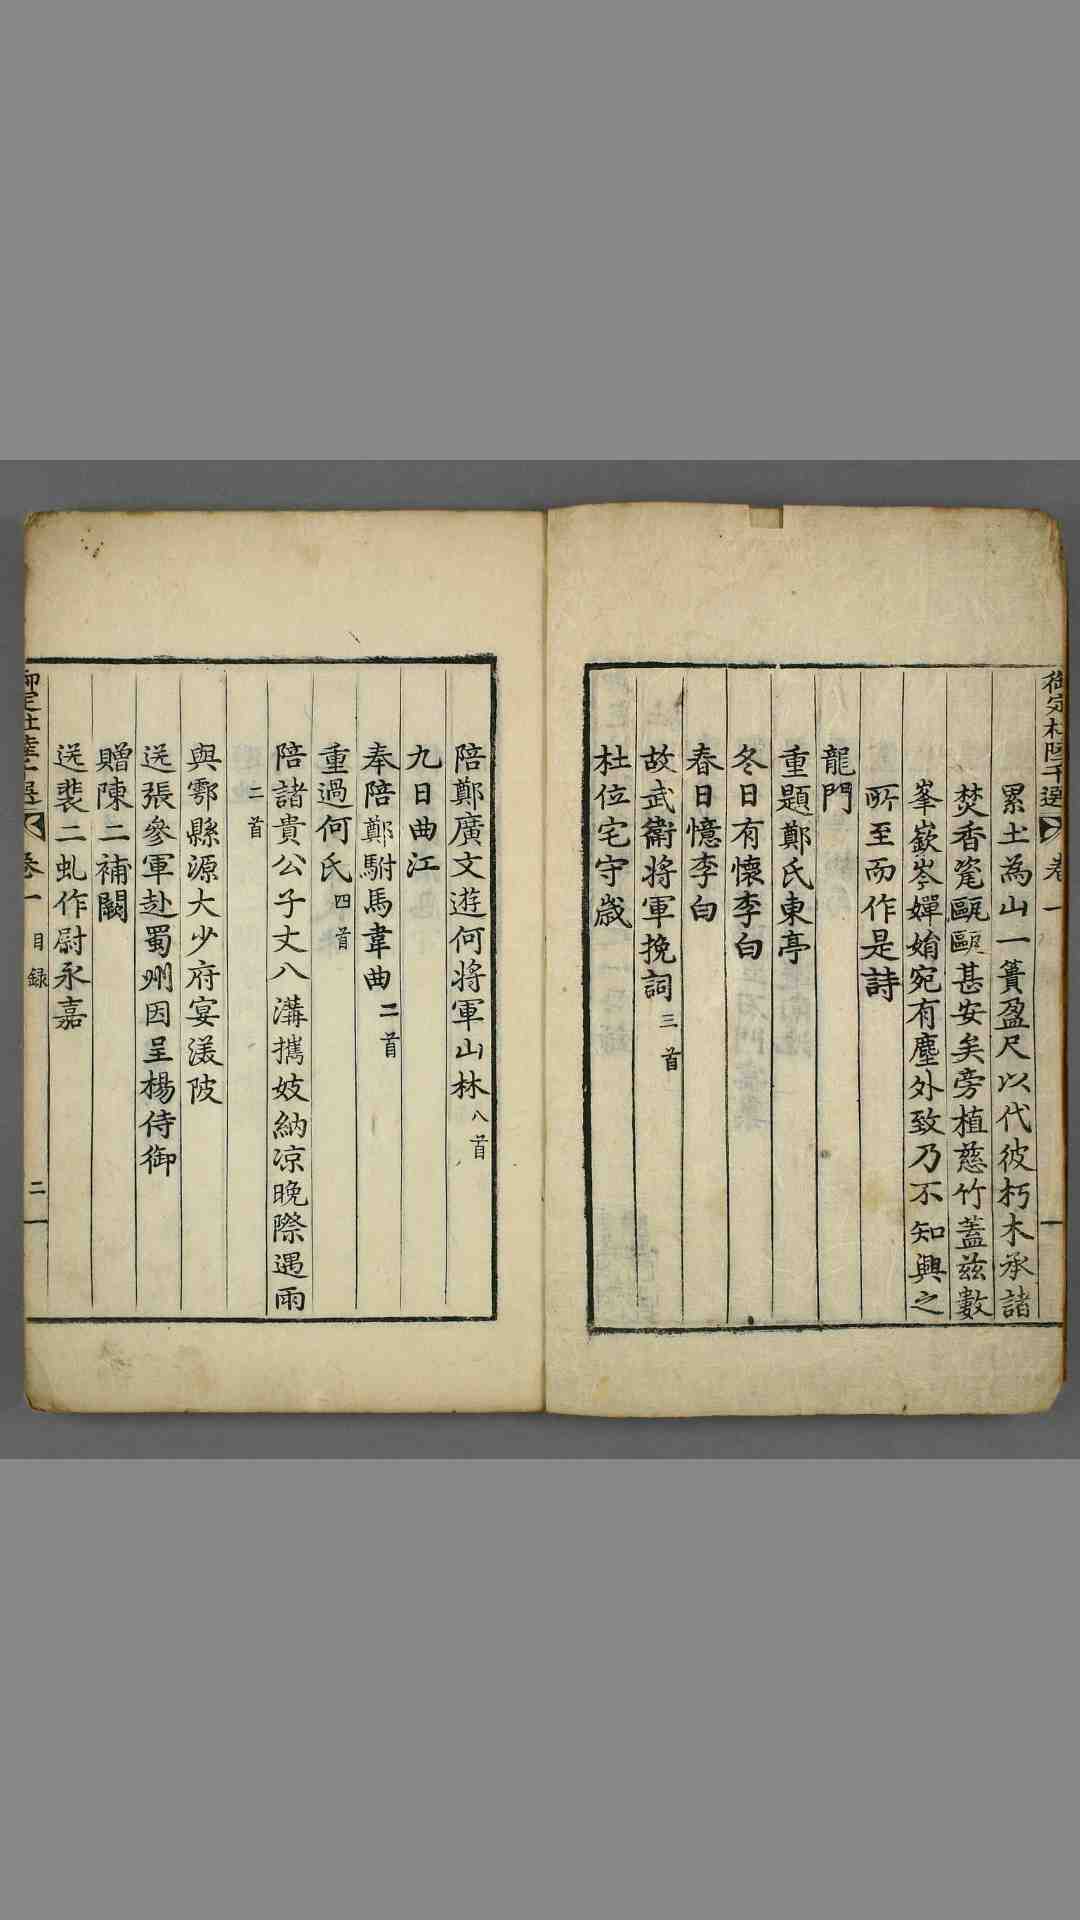 御定杜陸千選 卷一 一
累土為山一簣盈尺以代彼朽木承諸
焚香瓷甌甌甚安矣旁植慈竹蓋茲數
峯嶔岑嬋娟宛有塵外致乃不知興之
所至而作是詩
龍門
重題鄭氏東亭
冬日有懷李白
春日憶李白
故武衛將軍挽詞三首
杜位宅守歲
陪鄭廣文遊何將軍山林八首
九日曲江
奉陪鄭駙馬韋曲二首
重過何氏四首
陪諸貴公子丈八溝攜妓納凉晚際遇雨
二首
與鄠縣源大少府宴渼陂
送張參軍赴蜀州因呈楊侍御
贈陳二補闕
送裴二虬作尉永嘉
御定杜陸千選 卷一 目録 二